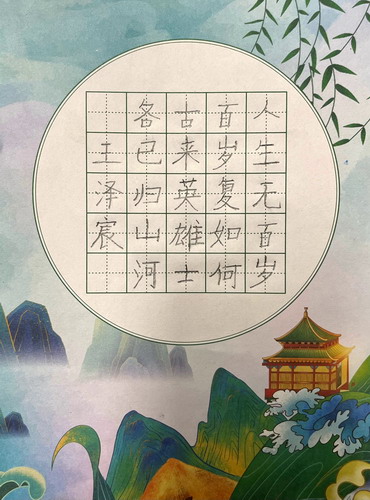 人生无百岁
百岁复如何
古来英雄士
各已归山河
王泽宸